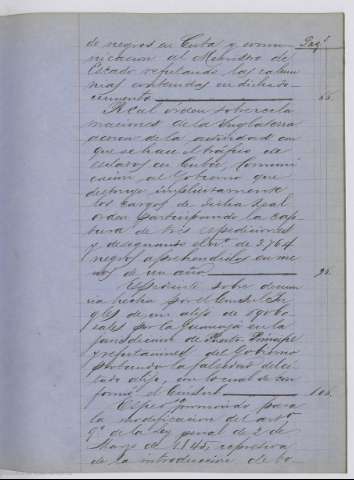 Pag.s
de negros en Cuba y comu-
nicacion al Ministro de
Estado refutando las calum
nias contenidas en dicho do-
cumento 66.
Real orden sobre recla
maciones de la Inglaterra
acerca de la actividad con
que se hace el tráfico de
esclavos en Cuba, Comuni
cación al Gobierno que
destruye implicitamente
los cargos de dicha Real
orden participando la cap
tura de tres expediciones
y designando el nº de 3,764
negros aprehendidos en me
nos de un año
Espediente sobre denun
cia hecha por el Consul In-
gles de un alijo de 190 bo
zales por la Guanaja en la
jurisdiccion de Puerto Principe
y refutaciones del Gobierno
probando la falsedad del ci
tado alijo, con lo cual se con
formó el Consul 106.
Esped. te promovido para
la modificacion del art.o
9º de la ley penal de 2 de
Marzo de 1845, represiva
de la introduccion de bo-